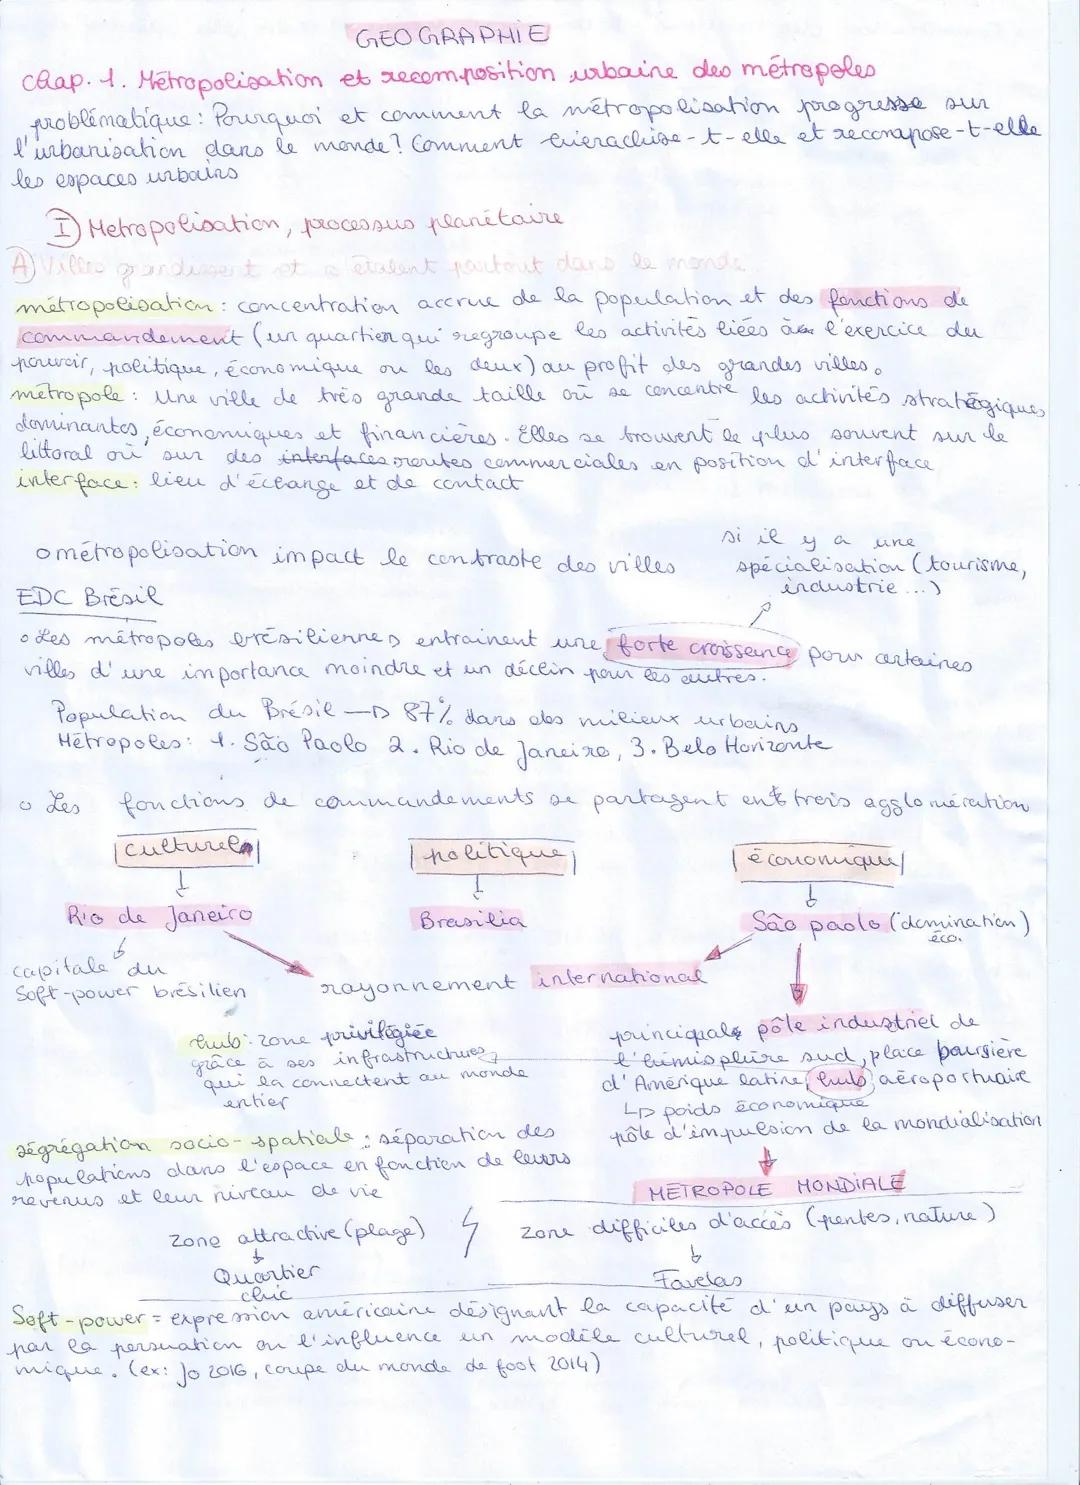 GEOGRAPHIE
Chap. 1. Métropolisation et recomposition urbaine des métropoles
problématique: Pourquoi et comment la métropolisation progresse sur
l'urbanisation dans le monde? Comment hiérachise-t-elle et recompose-t-elle
les espaces urbains
I) Metropolisation, processus planétaire
A) Villes grandissent et s'étalent partout dans le monde.
métropolisation: concentration accrue de la population et des fonctions de
commandement (un quartier qui regroupe les activités liées à l'exercice du
pouvoir, politique, économique ou les deux) au profit des grandes villes.
métropole: Une ville de très grande taille où se concentre les activités stratégiques
dominantes, économiques et financières. Elles se trouvent le plus souvent sur le
littoral où sur des interfaces routes commerciales en position d'interface
interface: lieu d'échange et de contact
o métropolisation impact le contraste des villes
si il y a une
spécialisation (tourisme,
industrie...)
EDC Brésil
o Les métropoles brésiliennes entrainent une forte croissance pour certaines
villes d'une importance moindre et un déclin pour les autres.
Population du Brésil → 87% dans des milieux urbains
Métropoles: 1. São Paolo 2. Rio de Janeiro, 3. Belo Horizonte
o Les fonctions de commandements se partagent ent trois agglomération
culturel politique économique
Rio de Janeiro Brasilia São paolo (domination)
éco.
capitale du
Soft-power brésilien
rayonnement international
hub: zone privilégiée
grâce à ses infrastructures
qui la connectent au monde
entier
principale pôle industriel de
l'hémisphère sud, place boursière
d'Amérique latine, hub aéroportuaire
↳ poids économique
pôle d'impulsion de la mondialisation
METROPOLE MONDIALE
ségrégation socio-spatiale: séparation des
populations dans l'espace en fonction de leurs
revenus et leur niveau de vie
zone attractive (plage) zone difficiles d'accès (pentes, nature)
Quartier
chic
Favelas
Soft-power = expression américaine désignant la capacité d'un pays à diffuser
par la persuation ou l'influence un modèle culturel, politique ou écono-
mique. (ex: Jo 2016, coupe du monde de foot 2014)